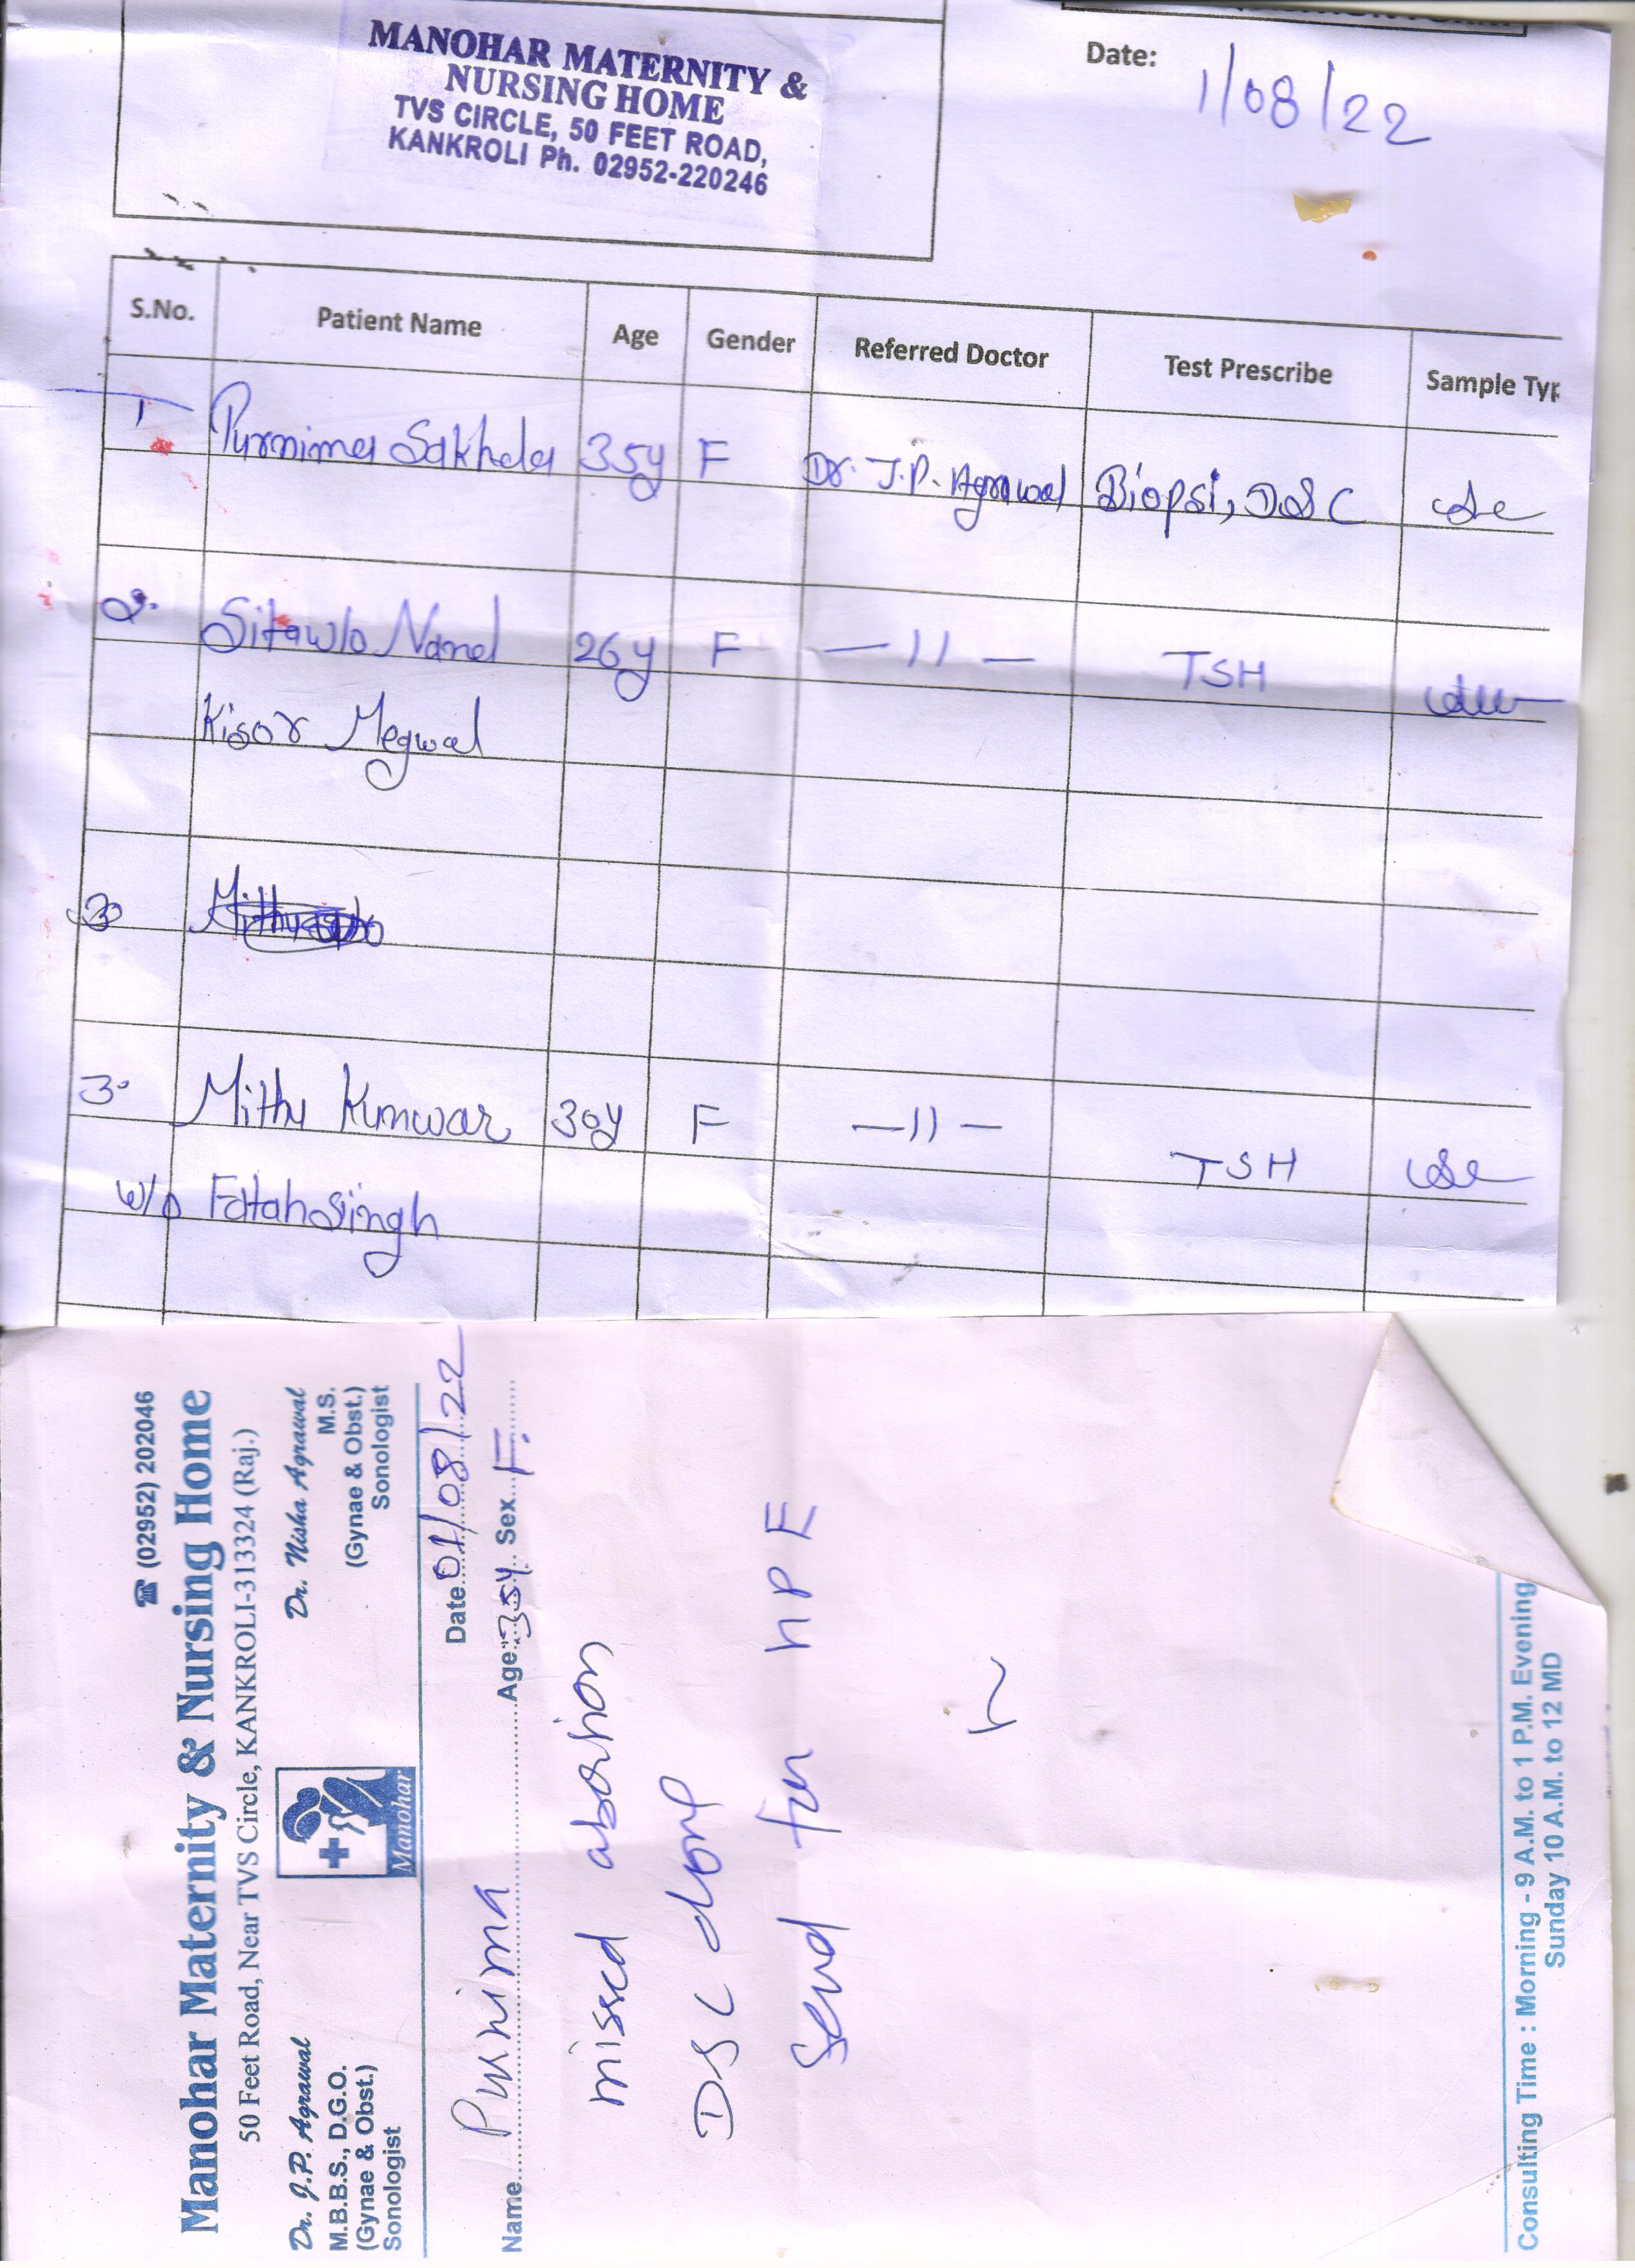 MANOHAR MATERNITY &
NURSING HOME
TVS CIRCLE, 50 FEET ROAD,
KANKROLI Ph. 02952-220246
Date: 1/08/22
S.No. Patient Name Age Gender Referred Doctor Test Prescribe Sample Typ
1 Purnima Sakhela 35y F Dr. J.P. Agrawal Biopsi, D&C
2. Sita w/o Nand 26y F —11— TSH
Kisor Megwal
3
3. Mithu Kunwar 30y F —11— TSH
w/o Fatah Siingh
☎ (02952) 202046
Manohar Maternity & Nursing Home
50 Feet Road, Near TVS Circle, KANKROLI-313324 (Raj.)
Dr. J.P. Agrawal
M.B.B.S., D.G.O.
(Gynae & Obst.)
Sonologist
Manohar
Dr. Nisha Agrawal
M.S.
(Gynae & Obst.)
Sonologist
Date 01/08/22
Name Purnima Age: 35y. Sex F.
missed abortion
D&C done
Send for HPE
Consulting Time : Morning - 9 A.M. to 1 P.M. Evening
Sunday 10 A.M. to 12 MD